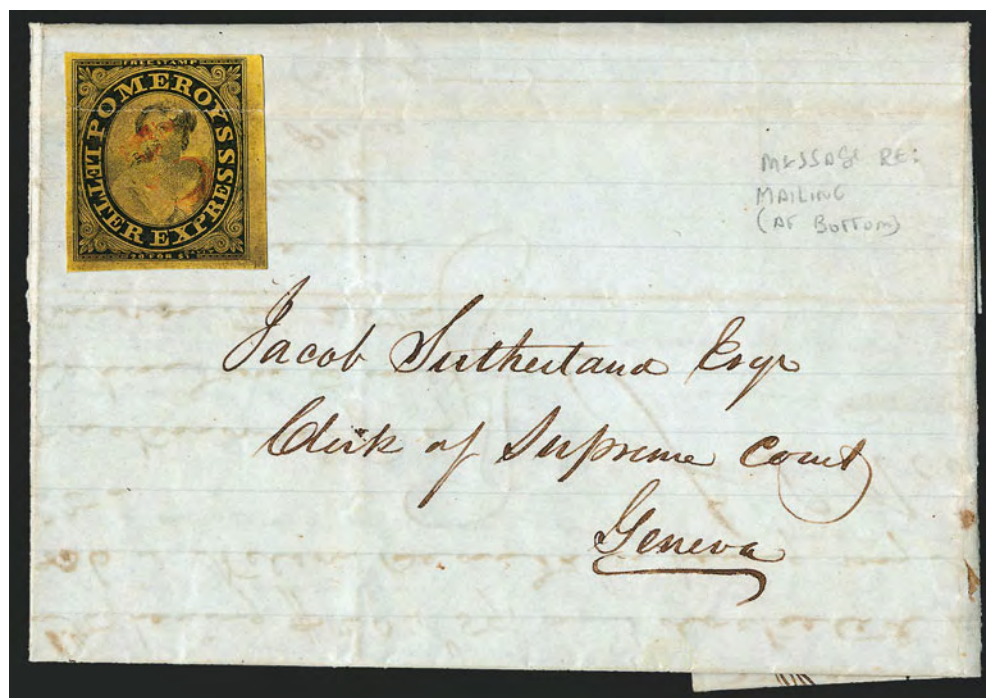 FREE STAMP
POMEROY'S LETTER EXPRESS
20 FOR $1
MESSAGE RE:
MAILING
(AT BOTTOM)
Jacob Sutherland Esqr
Clerk of Supreme Court
Geneva